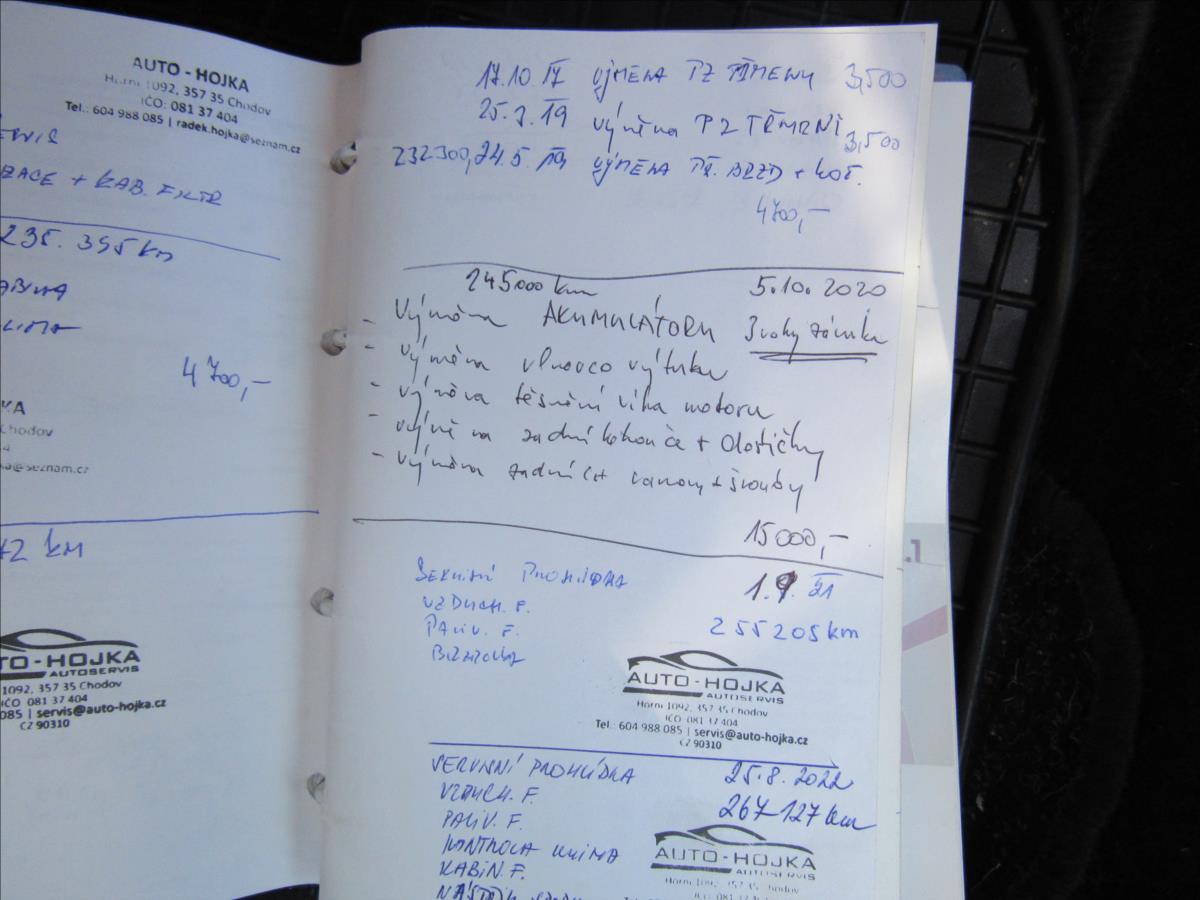 AUTO - HOJKA
Horní 1092, 357 35 Chodov
IČO: 081 37 404
Tel.: 604 988 085 | radek.hojka@seznam.cz
+ KAB. FILTR
235. 395 km
4 700,-
Chodov
ka@seznam.cz
72 KM
TO-HOJKA
AUTOSERVIS
1092, 357 35 Chodov
IČO 081 37 404
085 | servis@auto-hojka.cz
CZ 90310
17.10. VÝMĚNA PZ TŘMENY 3,500
25. 19 výměna PZ TŘMENŮ
3,500
232300, 24.5. VÝMĚNA PŘ. BRZD + KOT.
4700,-
245000 km 5.10. 2020
- Výměna AKUMULÁTORU 3 roky záruka
- výměna výfuku
- výměna těsnění víka motoru
- výměna zadní kotouče + destičky
- výměna zadních + šrouby
15000,-
SERVISNÍ PROHLÍDKA 1.9. 21
VZDUCH. F.
PALIV. F. 255205 km
AUTO-HOJKA
AUTOSERVIS
Horní 1092, 357 35 Chodov
IČO 081 37 404
Tel.: 604 988 085 | servis@auto-hojka.cz
CZ 90310
SERVISNÍ PROHLÍDKA 25.8.2022
VZDUCH. F. 267 127 km
PALIV. F.
KONTROLA KLIMA
KABIN. F.
AUTO-HOJKA
AUTOSERVIS
Horní 1092, 357 35 Chodov